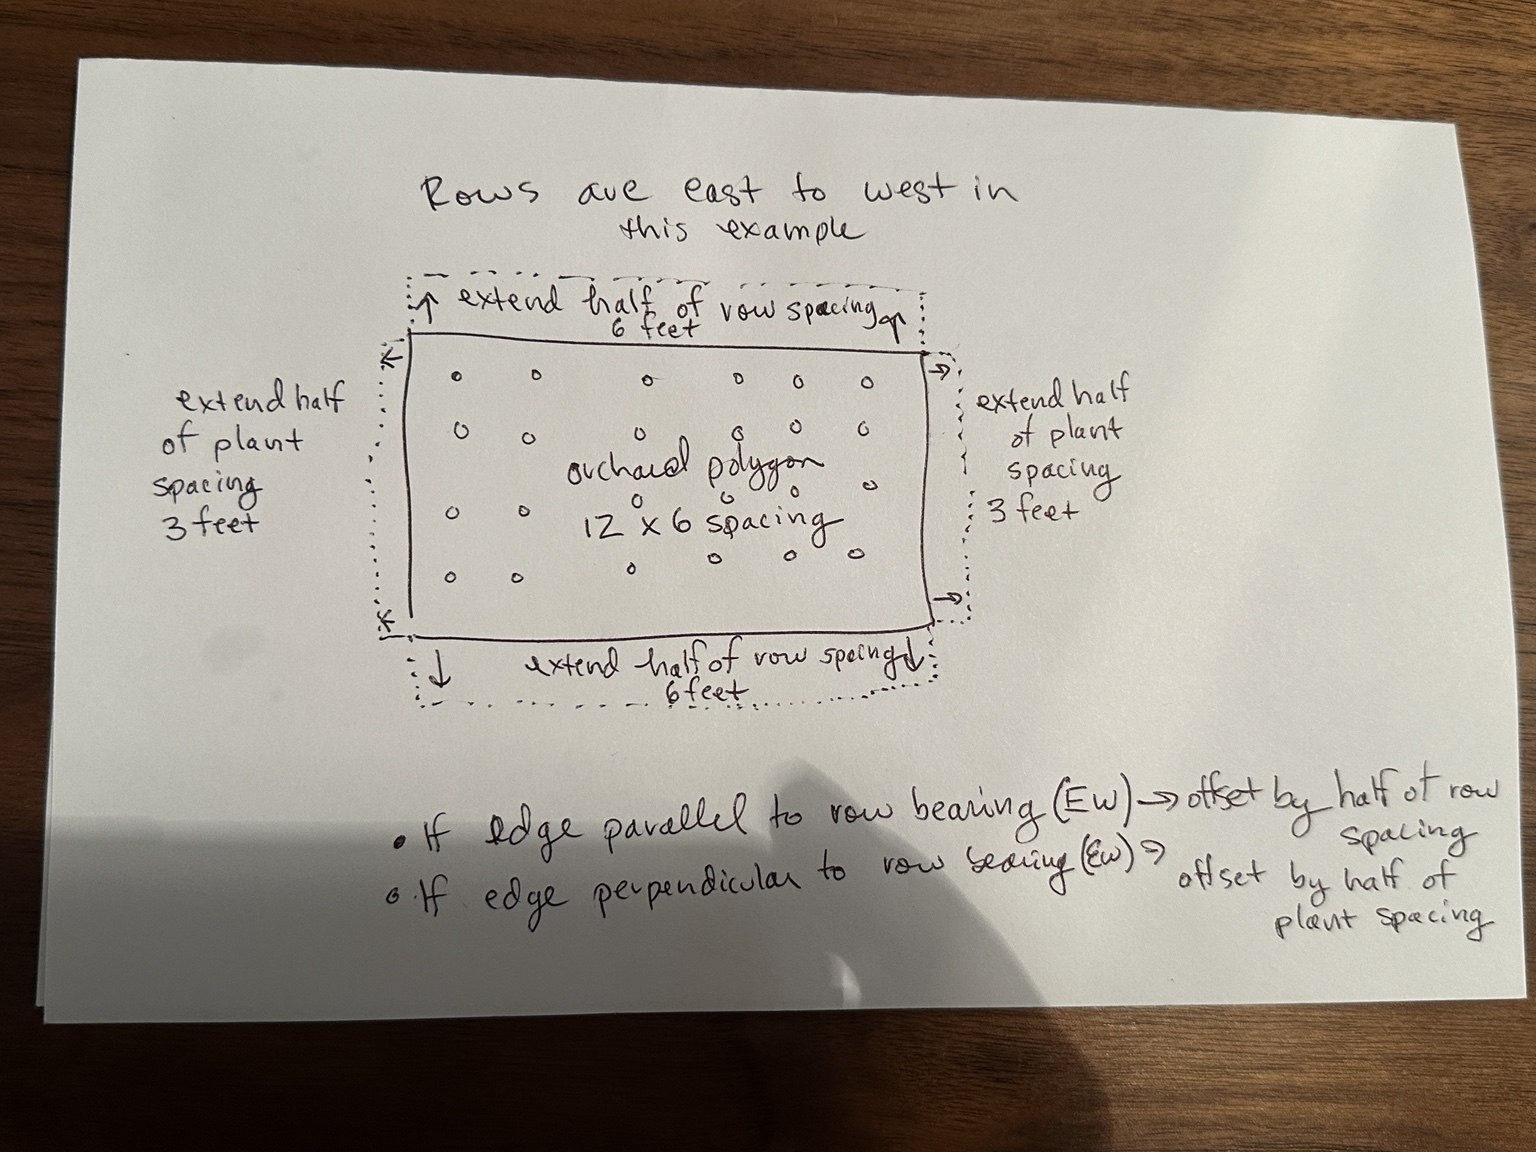 Rows are east to west in
this example
extend half of row spacing
6 feet
extend half
of plant
spacing
3 feet
orchard polygon
12 x 6 spacing
extend half
of plant
spacing
3 feet
extend half of row speing
6 feet
• If edge parallel to row bearing (EW) → offset by half of row
spacing
• If edge perpendicular to row bearing (EW) → offset by half of
plant spacing